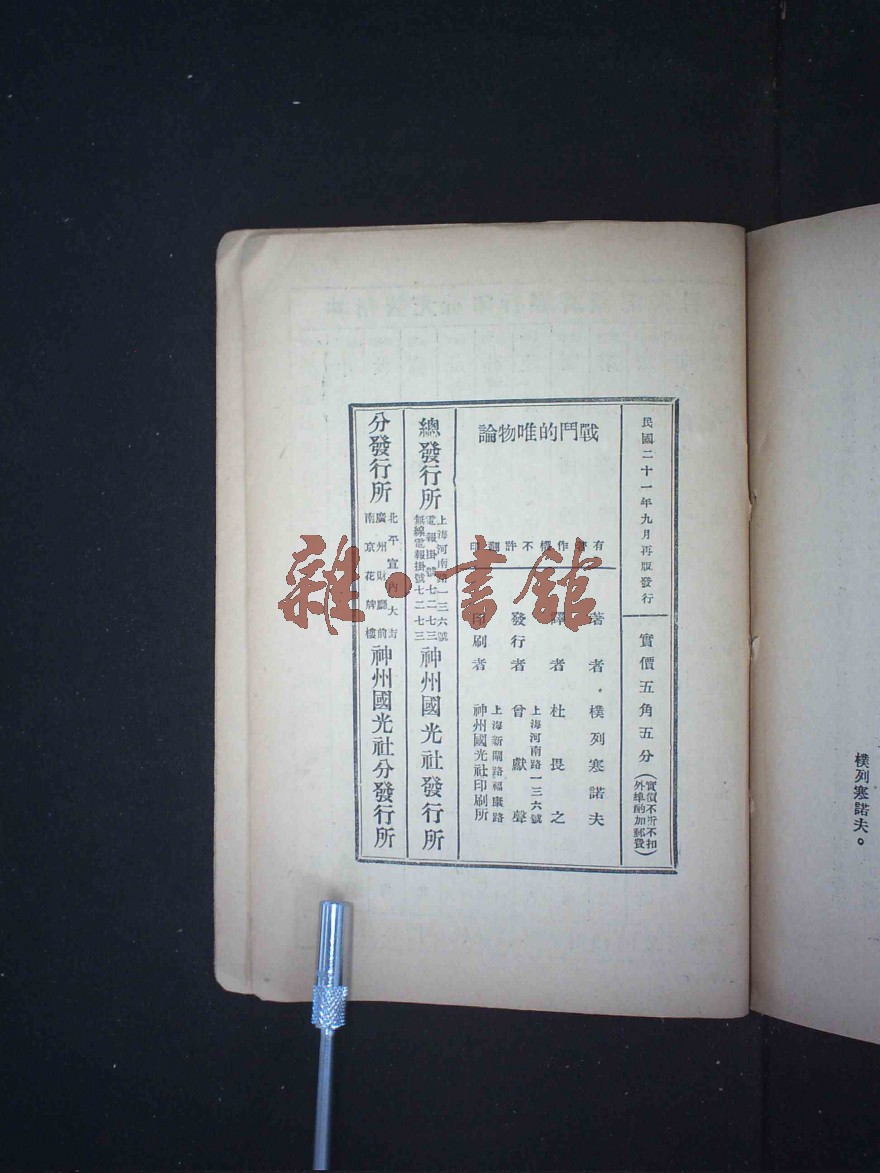 民國二十一年九月再版發行
實價五角五分
(實價不折不扣
外埠酌加郵費)
戰鬥的唯物論
有著作權不許翻印
著者 樸列寒諾夫
譯者 杜畏之
上海河南路一三六號
發行者 曾獻聲
上海新閘路福康路
印刷者 神州國光社印刷所
總發行所
上海河南路一三六號
電報掛號七二七三
無線電報掛號七二七三
神州國光社發行所
分發行所
北平宣內大街
廣州財廳前
南京花牌樓
神州國光社分發行所
樸列寒諾夫。
雜·書館